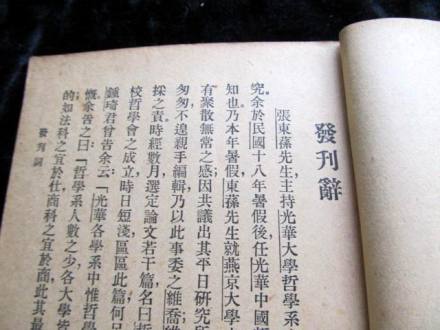 發刊辭
張東蓀先生主持光華大學哲學系
究余於民國十八年暑假後任光華中國
知也乃本年暑假東蓀先生就燕京大
有聚散無常之感因共議出其平日研究所
匆匆不遑親手編輯乃以此事委之維喬
採之責時經數月選定論文若干篇名曰哲
校哲學會之成立時日短淺區區此篇何
鍾琦君曾告余云「光華各學系中惟哲學
慨余告之曰「哲學系人數之少各大學皆
的如法科之宜於仕商科之宜於商此其最
發刊詞